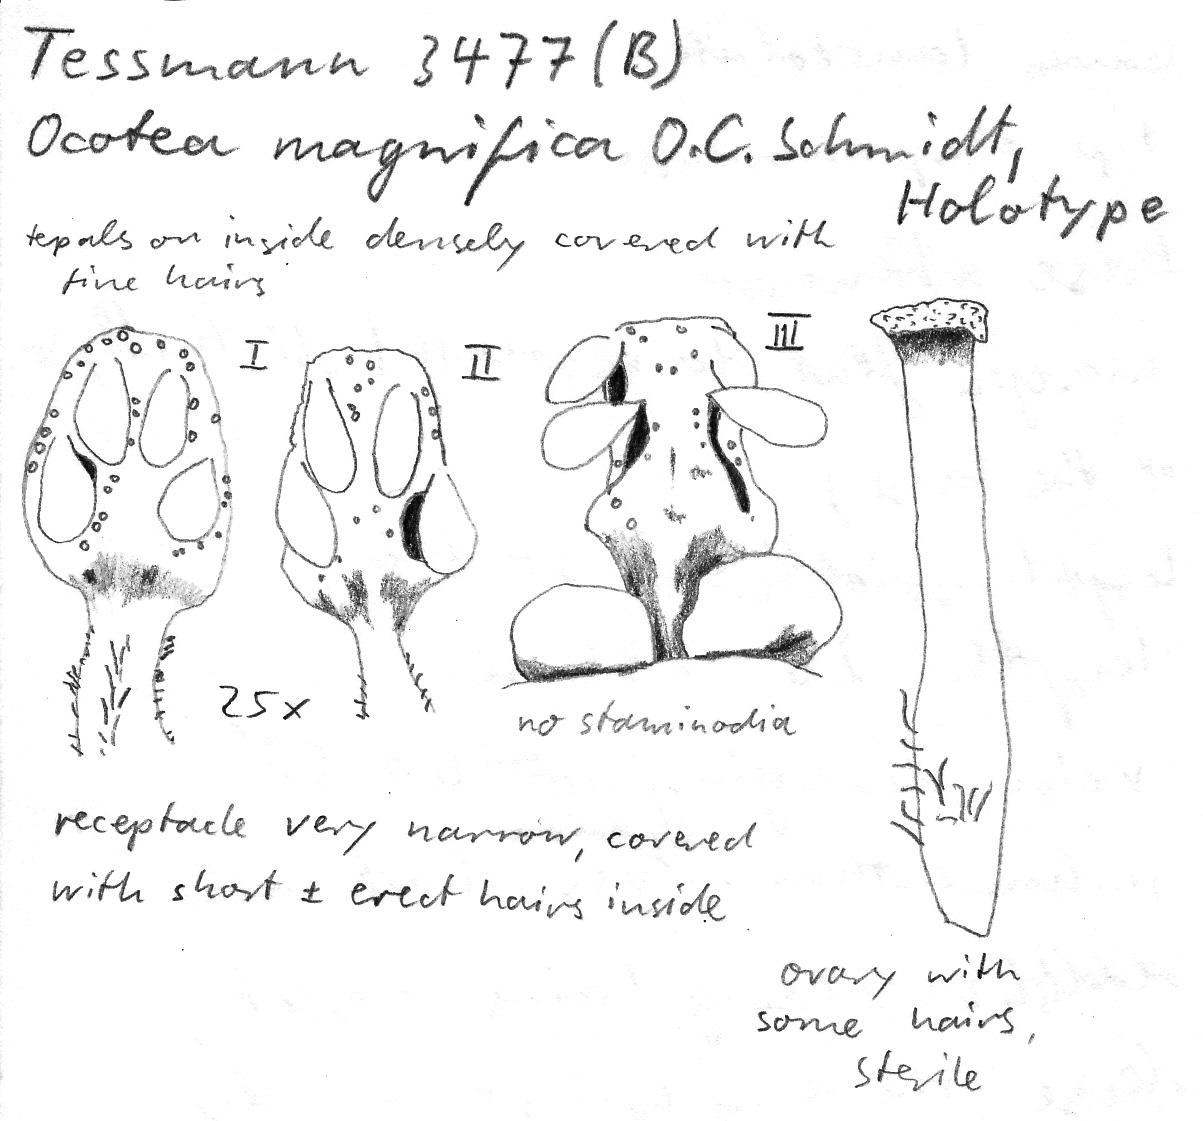 Tessmann 3477 (B)
Ocotea magnifica O.C. Schmidt,
Holotype
tepals on inside densely covered with
fine hairs
I
II
III
25x
no staminodia
receptacle very narrow, covered
with short ± erect hairs inside
ovary with
some hairs,
sterile